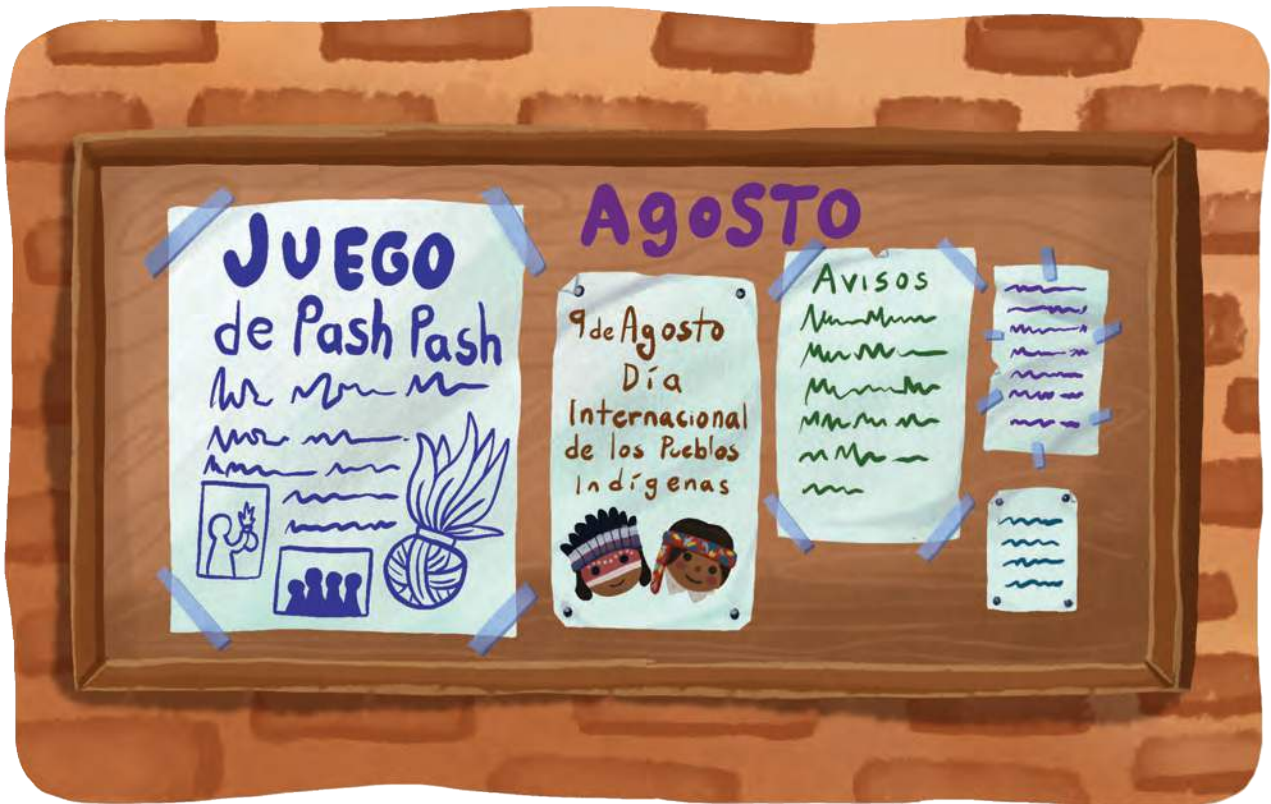 AgOSTO
JUEGO
de Pash Pash
9 de Agosto
Día
Internacional
de los Pueblos
Indígenas
AVISOS